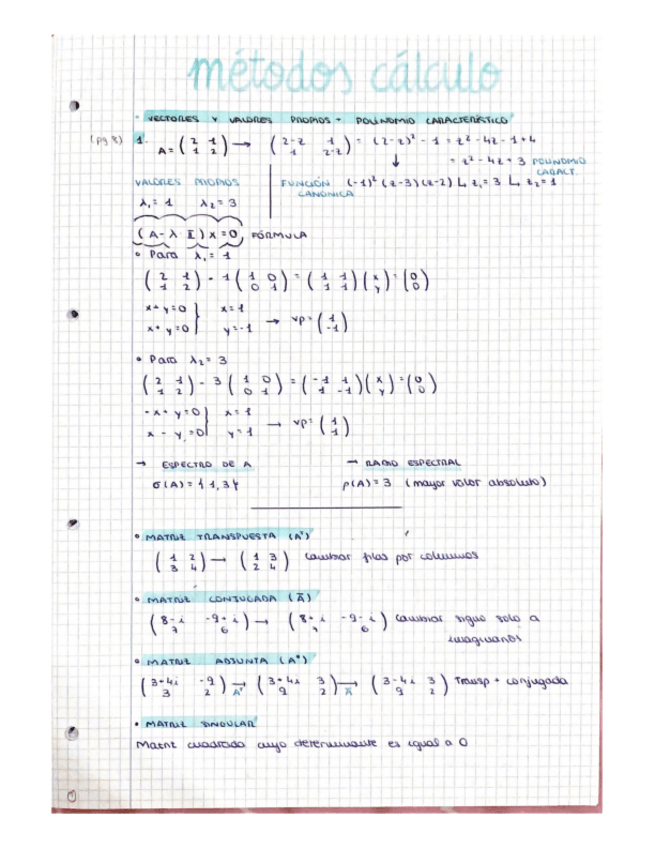 métodos cálculo
· VECTORES Y VALORES PROPIOS - POLINOMIO CARACTERÍSTICO
(pg 8) 1. A = (2 1; 1 2) → (2-z 1; 1 2-z) = (2-z)² - 1 = z² - 4z - 1 + 4
↓ = z² - 4z + 3 POLINOMIO CARACT.
VALORES PROPIOS FUNCIÓN CANÓNICA (-1)² (z-3)(z-2) ↳ z₁ = 3 ↳ z₂ = 1
λ₁ = 1 λ₂ = 3
(A - λ I) x = 0, FÓRMULA
• Para λ₁ = 1
(2 1; 1 2) - 1 (1 0; 0 1) = (1 1; 1 1) (x; y) = (0; 0)
x + y = 0 } x = 1
x + y = 0 } y = -1 → vp = (1; -1)
• Para λ₂ = 3
(2 1; 1 2) - 3 (1 0; 0 1) = (-1 1; 1 -1) (x; y) = (0; 0)
-x + y = 0 } x = 1
x - y = 0 } y = 1 → vp = (1; 1)
→ ESPECTRO DE A → RADIO ESPECTRAL
σ(A) = {1, 3} ρ(A) = 3 (mayor valor absoluto)
• MATRIZ TRANSPUESTA (Aᵗ)
(1 2; 3 4) → (1 3; 2 4) Cambiar filas por columnas
• MATRIZ CONJUGADA (Ā)
(8-i -9+i; 7 6) → (8+i -9-i; 7 6) Cambiar signo solo a
imaginarios
• MATRIZ ADJUNTA (A*)
(3+4i -9; 3 2) →Aᵗ (3+4i 3; 9 2) →Ā (3-4i 3; 9 2) Transp + conjugada
• MATRIZ SINGULAR
Matriz cuadrada cuyo determinante es igual a 0
1